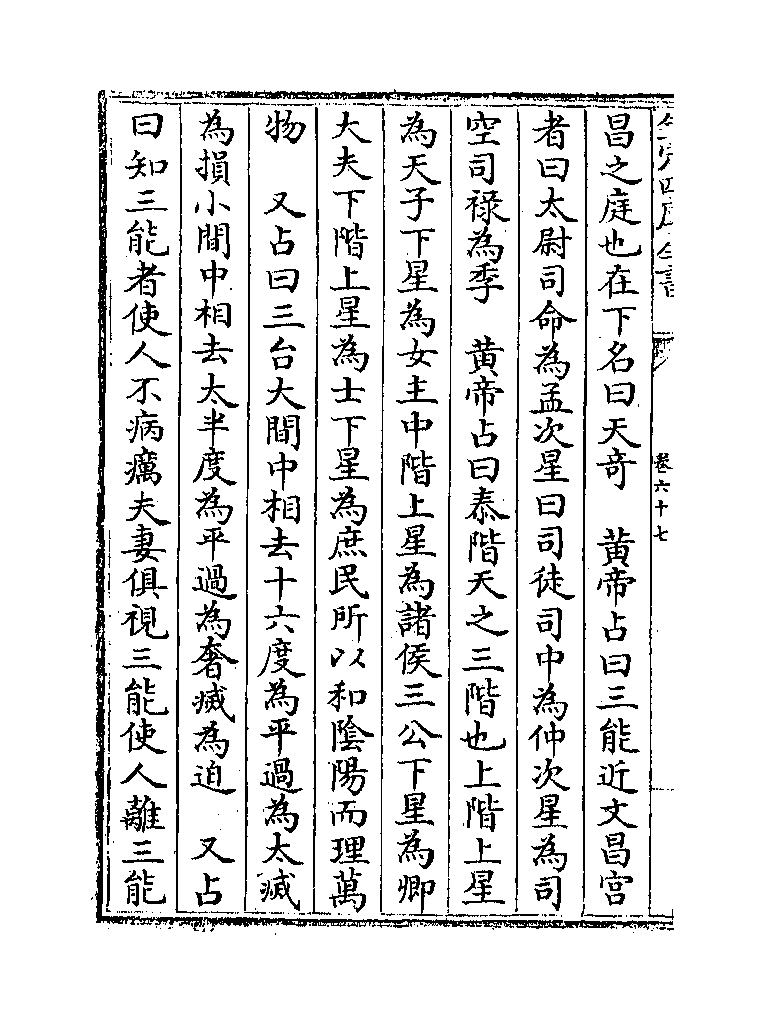 卷六十七
昌之庭也在下名曰天竒　黄帝占曰三能近文昌宫
者曰太尉司命為孟次星曰司徒司中為仲次星為司
空司禄為季　黄帝占曰泰階天之三階也上階上星
為天子下星為女主中階上星為諸侯三公下星為卿
大夫下階上星為士下星為庶民所以和陰陽而理萬
物　又占曰三台大間中相去十六度為平過為太㓕
為損小間中相去太半度為平過為奢㓕為迫　又占
曰知三能者使人不病癘夫妻俱視三能使人離三能